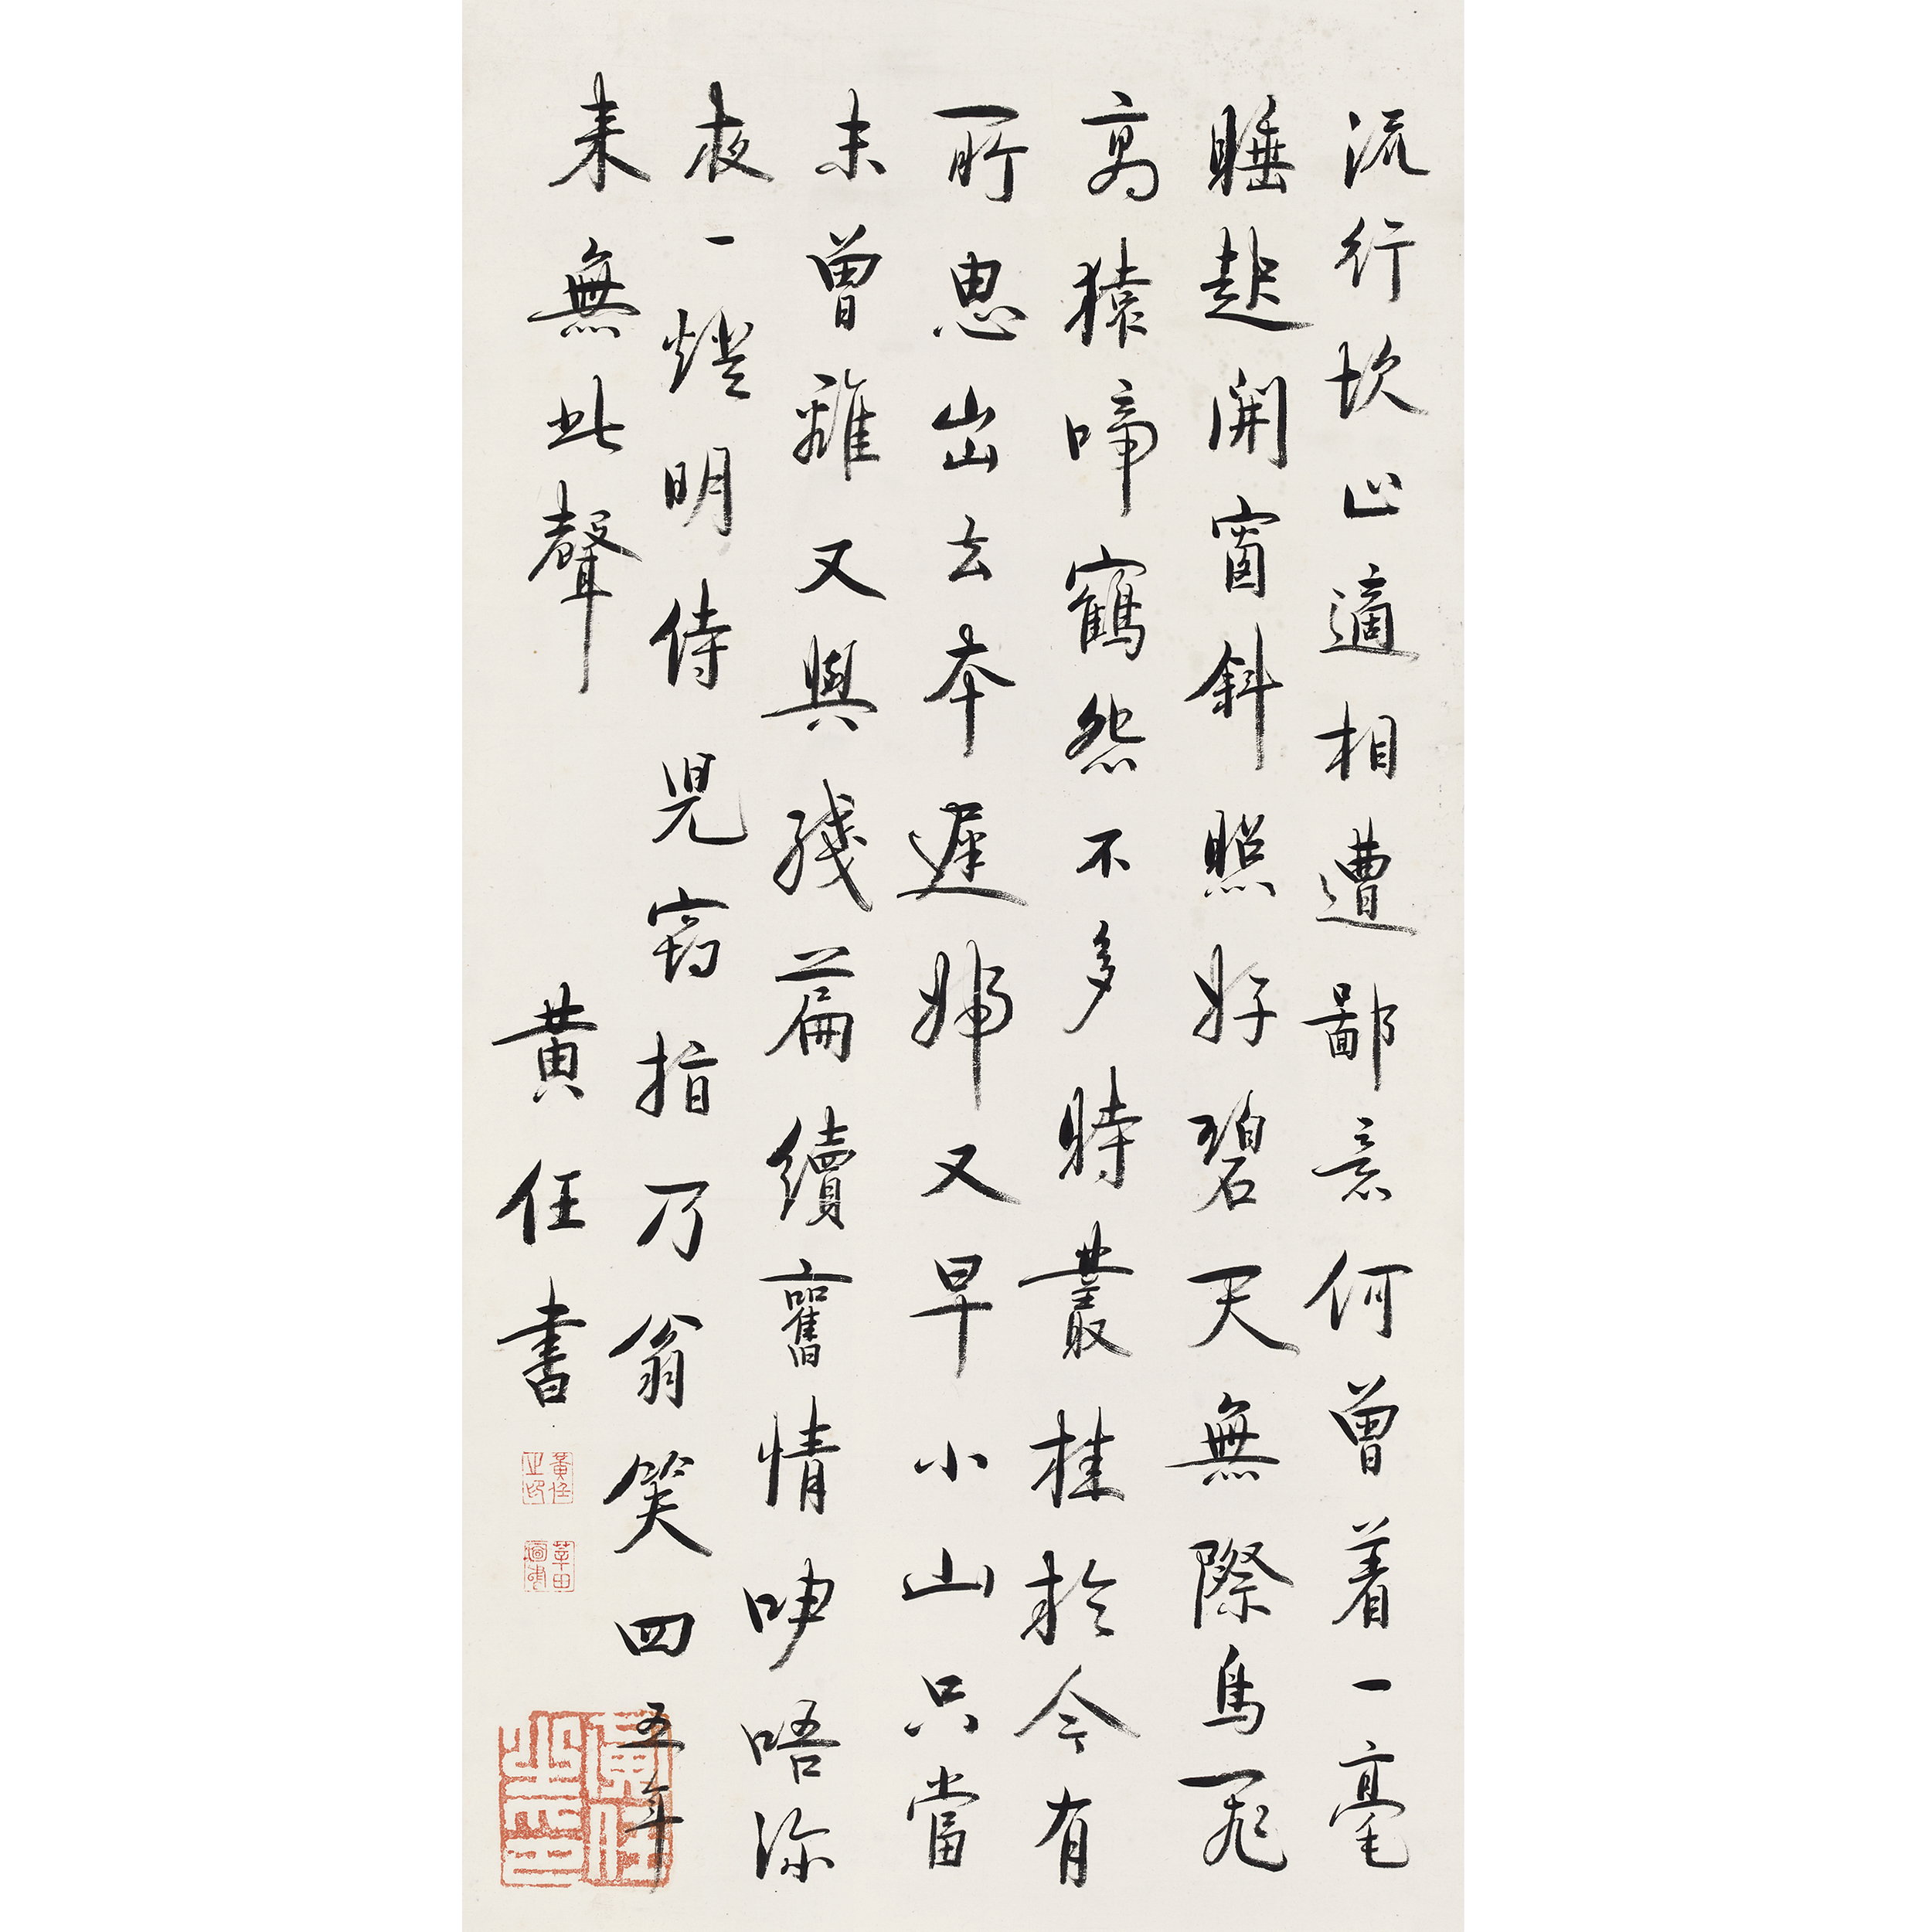 流行坎止適相遭鄙意何曾着一毫
睡起開窗斜照好碧天無際鳥飛
高猿啼鶴怨不多時叢桂於今有
所思出去本遲歸又早小山只當
未曾離又與殘篇續舊情咿唔深
夜一燈明侍兒竊指乃翁笑四五年
来無此聲
黃任書
黃任之印
莘田
黃任之印